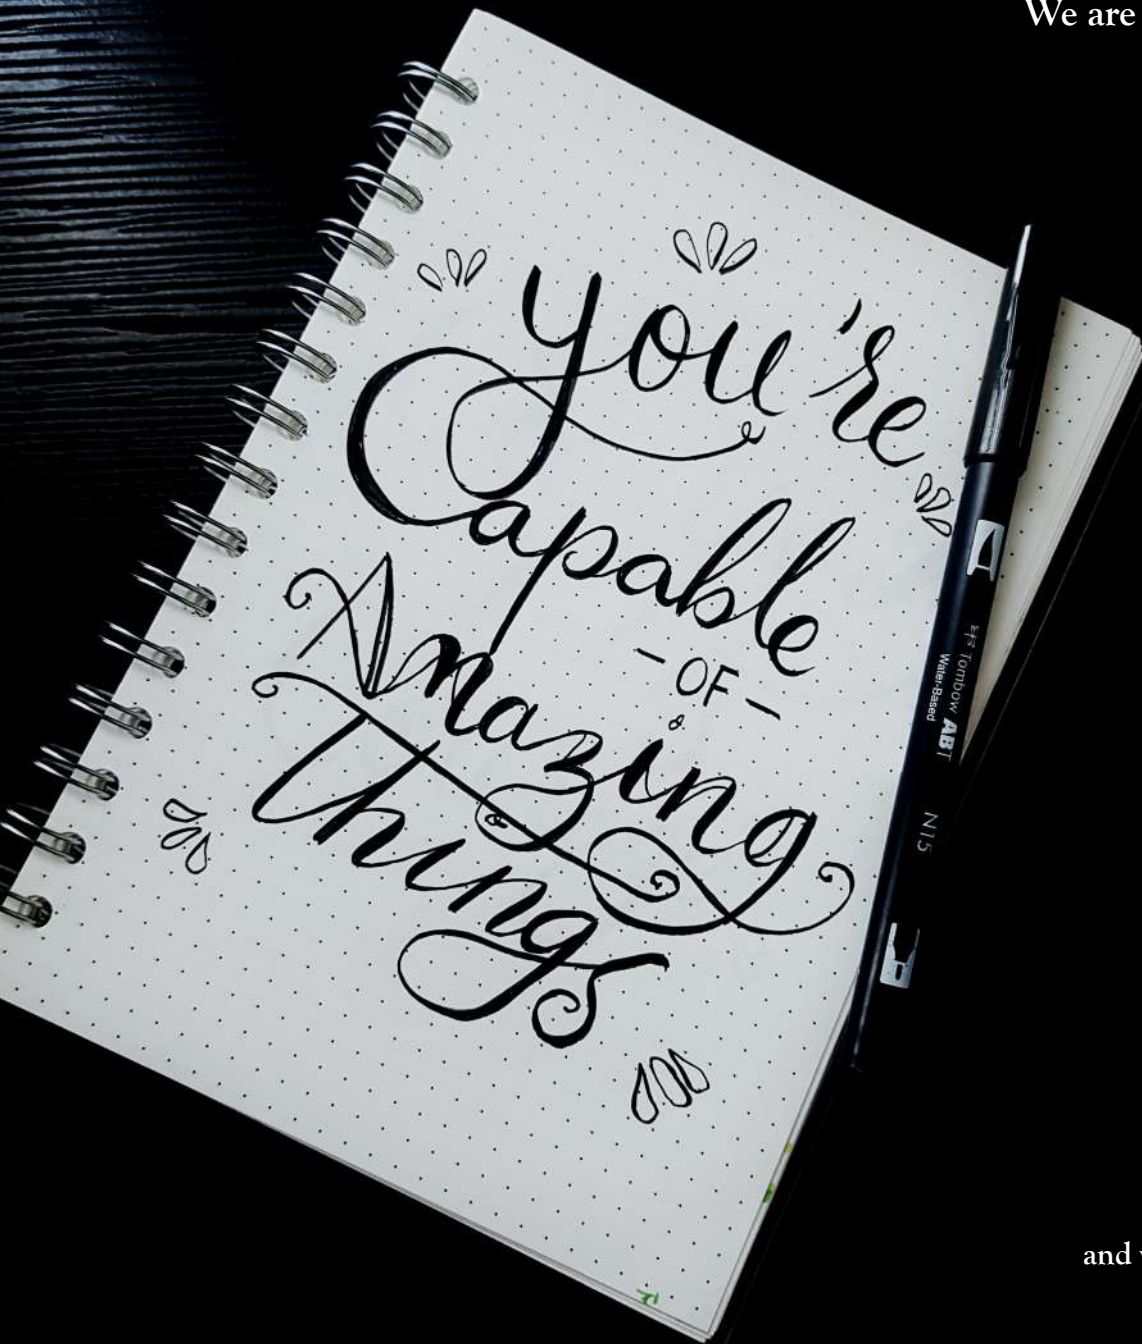 We are
you're
Capable
-OF-
Amazing
Things
Tombow ABT
Water-Based
N15
and